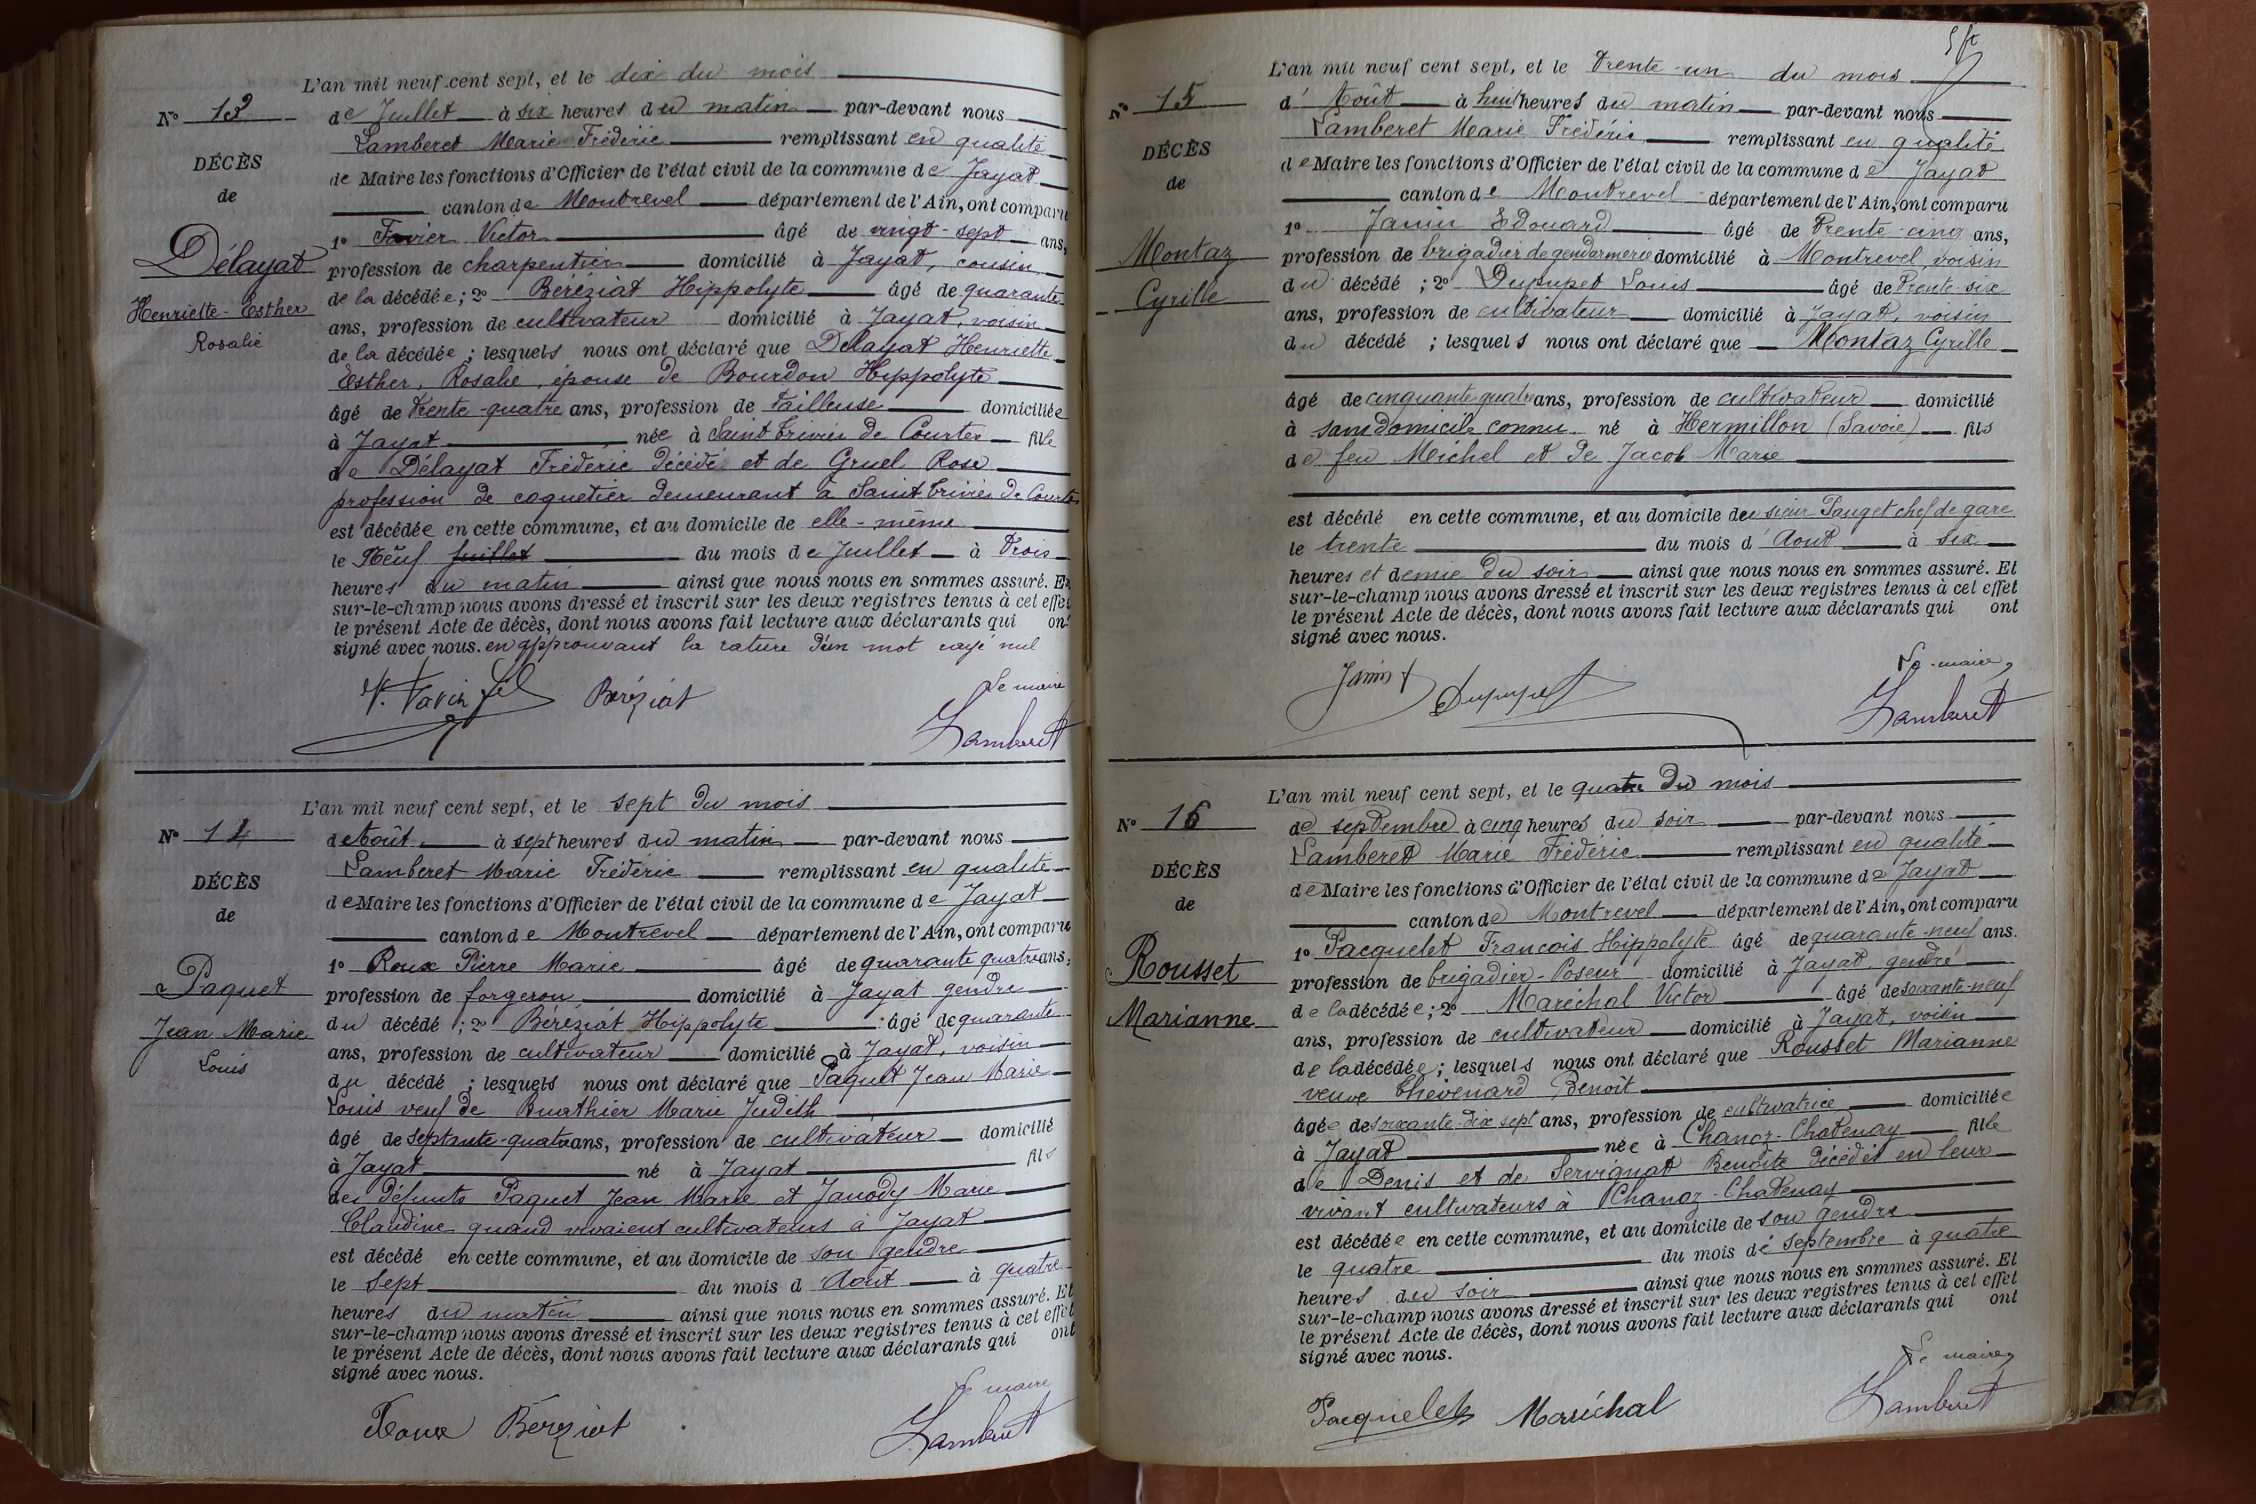 L'an mil neuf cent sept, et le dix du mois
N° 13
de Juillet à six heures du matin par-devant nous
Lamberet Marie Frédéric remplissant en qualité
DÉCÈS
de Maire les fonctions d'Officier de l'état civil de la commune de Jayat
de
canton de Montrevel département de l'Ain, ont comparu
1° Favier Victor âgé de vingt-sept ans,
Délayat
profession de charpentier domicilié à Jayat, cousin
Henriette-Esther
de la décédée; 2° Béréziat Hippolyte âgé de quarante
Rosalie
ans, profession de cultivateur domicilié à Jayat, voisin
de la décédée; lesquels nous ont déclaré que Délayat Henriette
Esther, Rosalie, épouse de Bourdon Hippolyte
âgé de trente-quatre ans, profession de tailleuse domiciliée
à Jayat née à Saint Trivier de Courtes fille
de Délayat Frédéric décédé et de Gruel Rose
profession de coquetier demeurant à Saint Trivier de Courtes
est décédée en cette commune, et au domicile de elle-même
le Neuf Juillet du mois de Juillet à trois
heures du matin ainsi que nous nous en sommes assuré. Et
sur-le-champ nous avons dressé et inscrit sur les deux registres tenus à cet effet
le présent Acte de décès, dont nous avons fait lecture aux déclarants qui ont
signé avec nous. en approuvant la rature d'un mot rayé nul
Béréziat
Le maire
Lamberet
L'an mil neuf cent sept, et le sept du mois
N° 14
d'Août à sept heures du matin par-devant nous
Lamberet Marie Frédéric remplissant en qualité
DÉCÈS
de Maire les fonctions d'Officier de l'état civil de la commune de Jayat
de
canton de Montrevel département de l'Ain, ont comparu
1° Roux Pierre Marie âgé de quarante quatre ans,
Paquet
profession de forgeron domicilié à Jayat gendre
Jean Marie
du décédé; 2° Béréziat Hippolyte âgé de quarante
Louis
ans, profession de cultivateur domicilié à Jayat, voisin
du décédé; lesquels nous ont déclaré que Paquet Jean Marie
Louis veuf de Buathier Marie Judith
âgé de septante-quatre ans, profession de cultivateur domicilié
à Jayat né à Jayat fils
des défunts Paquet Jean Marie et Janody Marie
Claudine quand vivaient cultivateurs à Jayat
est décédé en cette commune, et au domicile de son gendre
le sept du mois d'Août à quatre
heures du matin ainsi que nous nous en sommes assuré. Et
sur-le-champ nous avons dressé et inscrit sur les deux registres tenus à cet effet
le présent Acte de décès, dont nous avons fait lecture aux déclarants qui ont
signé avec nous.
Roux Béréziat
Le maire
Lamberet
L'an mil neuf cent sept, et le trente-un du mois
N° 15
d'Août à huit heures du matin par-devant nous
Lamberet Marie Frédéric remplissant en qualité
DÉCÈS
de Maire les fonctions d'Officier de l'état civil de la commune de Jayat
de
canton de Montrevel département de l'Ain, ont comparu
1° Janin Edouard âgé de trente-cinq ans,
Montaz
profession de brigadier de gendarmerie domicilié à Montrevel, voisin
Cyrille
du décédé; 2° Dupupet Louis âgé de trente-six
ans, profession de cultivateur domicilié à Jayat, voisin
du décédé; lesquels nous ont déclaré que Montaz Cyrille
âgé de cinquante quatre ans, profession de cultivateur domicilié
à sans domicile connu né à Hermillon (Savoie) fils
de feu Michel et de Jacob Marie
est décédé en cette commune, et au domicile du sieur Pauget chef de gare
le trente du mois d'Aout à six
heures et demie du soir ainsi que nous nous en sommes assuré. Et
sur-le-champ nous avons dressé et inscrit sur les deux registres tenus à cet effet
le présent Acte de décès, dont nous avons fait lecture aux déclarants qui ont
signé avec nous.
Janin Dupupet
Le maire,
Lamberet
L'an mil neuf cent sept, et le quatre du mois
N° 16
de septembre à cinq heures du soir par-devant nous
Lamberet Marie Frédéric remplissant en qualité
DÉCÈS
de Maire les fonctions d'Officier de l'état civil de la commune de Jayat
de
canton de Montrevel département de l'Ain, ont comparu
1° Pacquelet François Hippolyte âgé de quarante-neuf ans.
Rousset
profession de brigadier-Poseur domicilié à Jayat, gendre
Marianne
de la décédée; 2° Maréchal Victor âgé de soixante-neuf
ans, profession de cultivateur domicilié à Jayat, voisin
de la décédée; lesquels nous ont déclaré que Rousset Marianne
veuve Chevenard Benoît
âgée de soixante-dix sept ans, profession de cultivatrice domiciliée
à Jayat née à Chanoz-Chatenay fille
de Denis et de Servignat Benoîte décédés en leur
vivant cultivateurs à Chanoz-Chatenay
est décédée en cette commune, et au domicile de son gendre
le quatre du mois de septembre à quatre
heures du soir ainsi que nous nous en sommes assuré. Et
sur-le-champ nous avons dressé et inscrit sur les deux registres tenus à cet effet
le présent Acte de décès, dont nous avons fait lecture aux déclarants qui ont
signé avec nous.
Pacquelet Maréchal
Le maire,
Lamberet